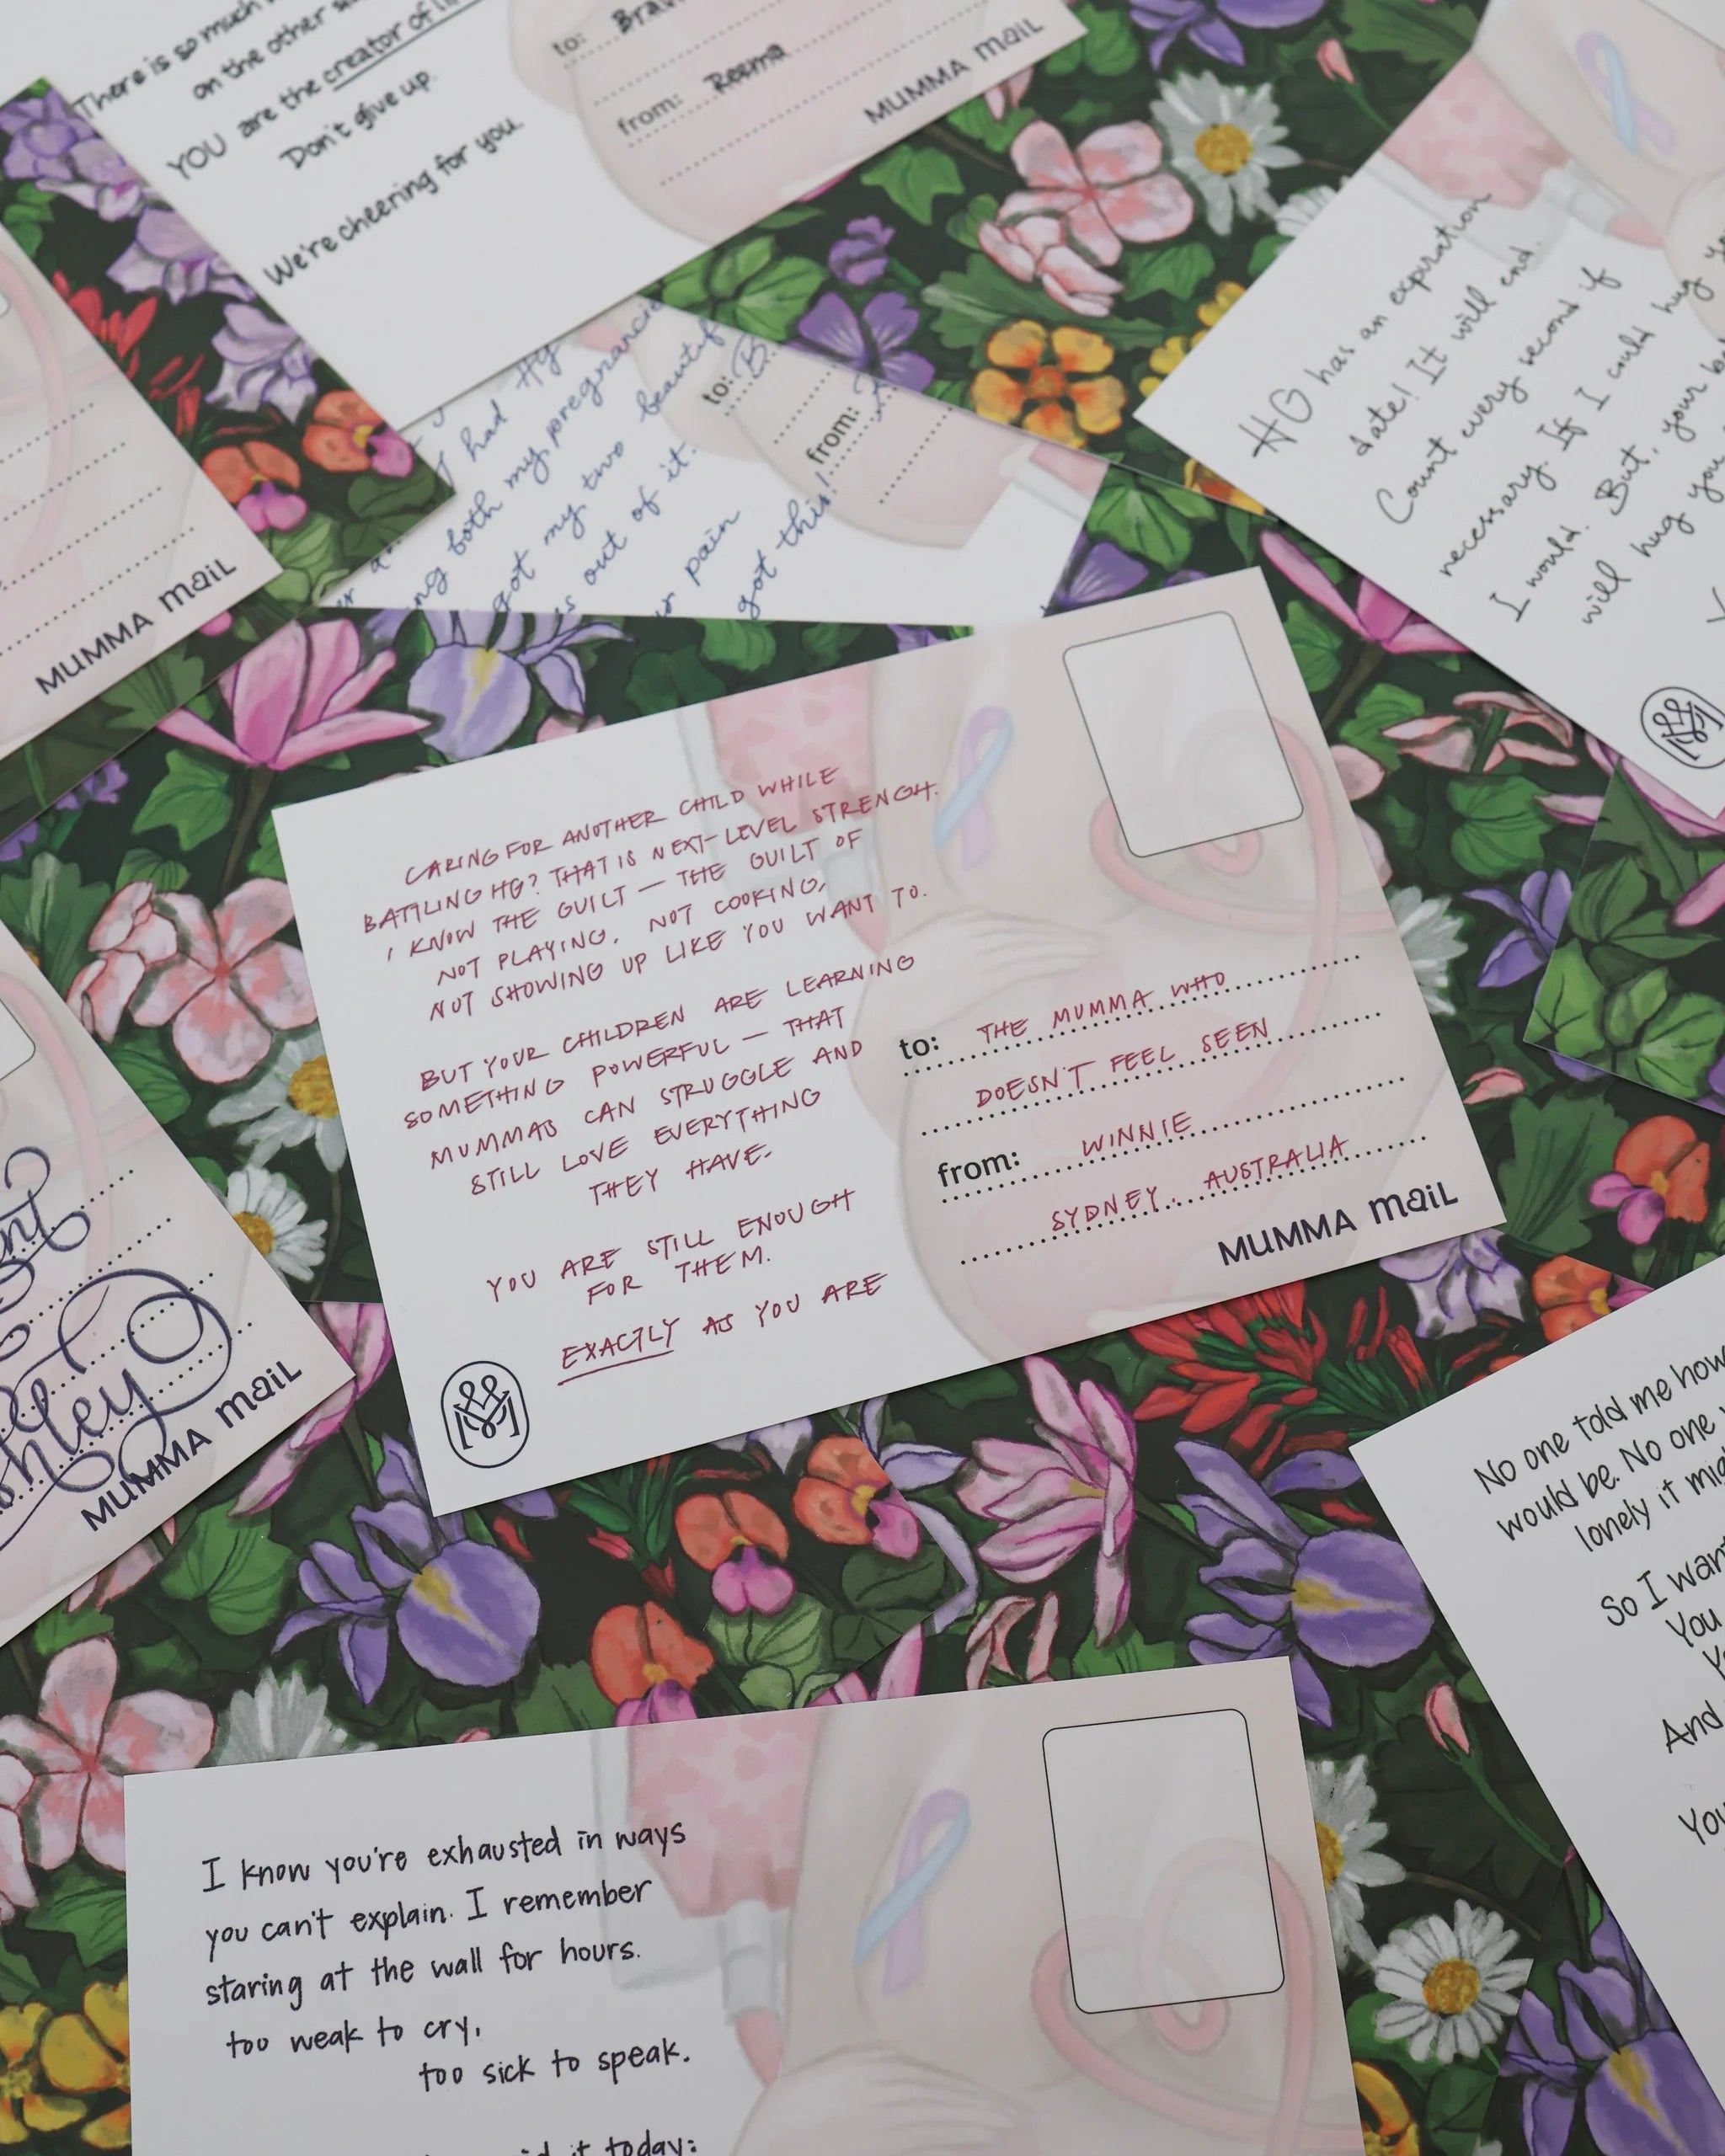 There is so much
on the other
YOU are the creator of
Don't give up.
We're cheering for you.
to:
from: Reema
MUMMA maiL
I had HG
both my pregnancie
got my two beautif
out of it.
pain
got this!
to: B.
from:
HG has an expiration
date! It will end.
Count every second if
necessary. If I could hug
I would. But, your
will hug you
MUMMA maiL
CARING FOR ANOTHER CHILD WHILE
BATTLING HG? THAT IS NEXT-LEVEL STRENGH.
I KNOW THE GUILT — THE GUILT OF
NOT PLAYING, NOT COOKING,
NOT SHOWING UP LIKE YOU WANT TO.
BUT YOUR CHILDREN ARE LEARNING
SOMETHING POWERFUL — THAT
MUMMAS CAN STRUGGLE AND
STILL LOVE EVERYTHING
THEY HAVE.
YOU ARE STILL ENOUGH
FOR THEM.
EXACTLY AS YOU ARE
to: THE MUMMA WHO
DOESN'T FEEL SEEN
from: WINNIE
SYDNEY, AUSTRALIA
MUMMA maiL
MUMMA maiL
No one told me how
would be. No one
lonely it
So I
You
And
I know you're exhausted in ways
you can't explain. I remember
staring at the wall for hours.
too weak to cry,
too sick to speak.
it today: